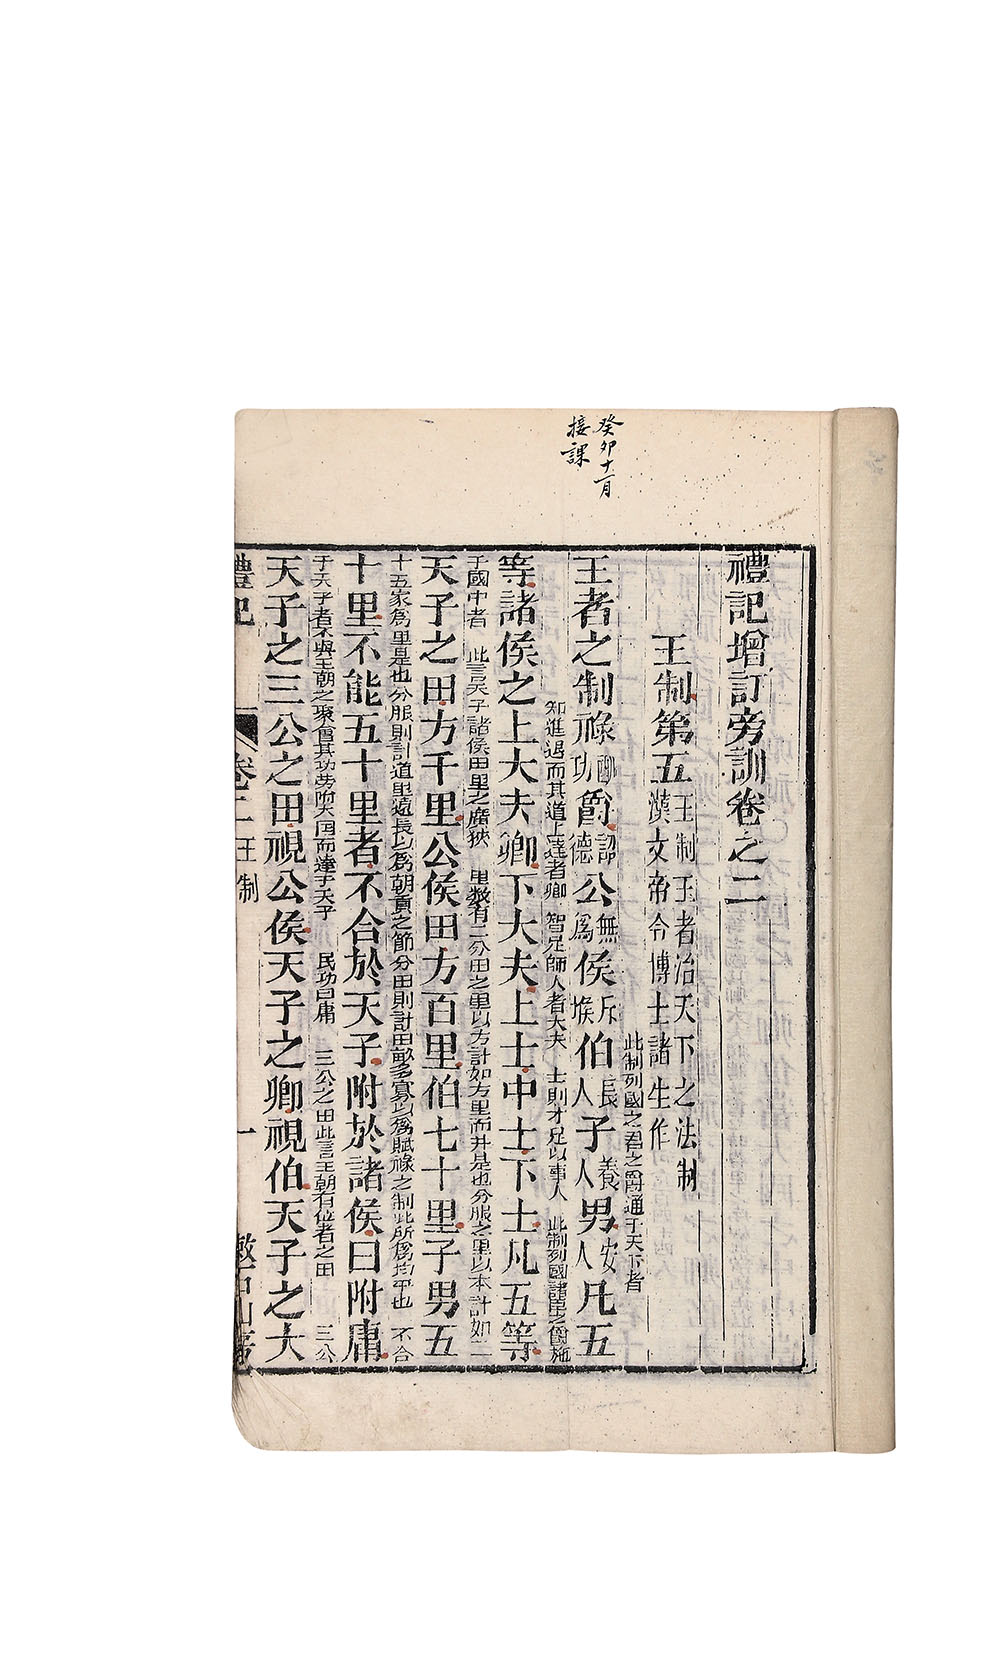 癸卯十一月
接課
禮記增訂旁訓卷之二
王制第五 王制王者治天下之法制漢文帝令博士諸生作
此制列國之君之爵通于天下者
王者之制祿酬功爵詔德公無爲侯斥堠伯長人子養人男安人凡五
知進退而其道上達者卿 智足師人者大夫 士則才足以事人 此制列國諸臣之爵施
等諸侯之上大夫卿下大夫上士中士下士凡五等
于國中者 此言天子諸侯田里之廣狹 里數有二分田之里以方計如方里而井是也分服之里以本計如二
天子之田方千里公侯田方百里伯七十里子男五
十五家爲里是也分服則計道里遠長以爲朝貢之節分田則計田畝多寡以爲賦祿之制此所爲均平也 不合
十里不能五十里者不合於天子附於諸侯曰附庸
于天子者不與王朝之聚會其功勞附大国而達于天子 民功曰庸 三公之田此言王朝有位者之田 三公
天子之三公之田視公侯天子之卿視伯天子之大
禮記 卷二 王制 一